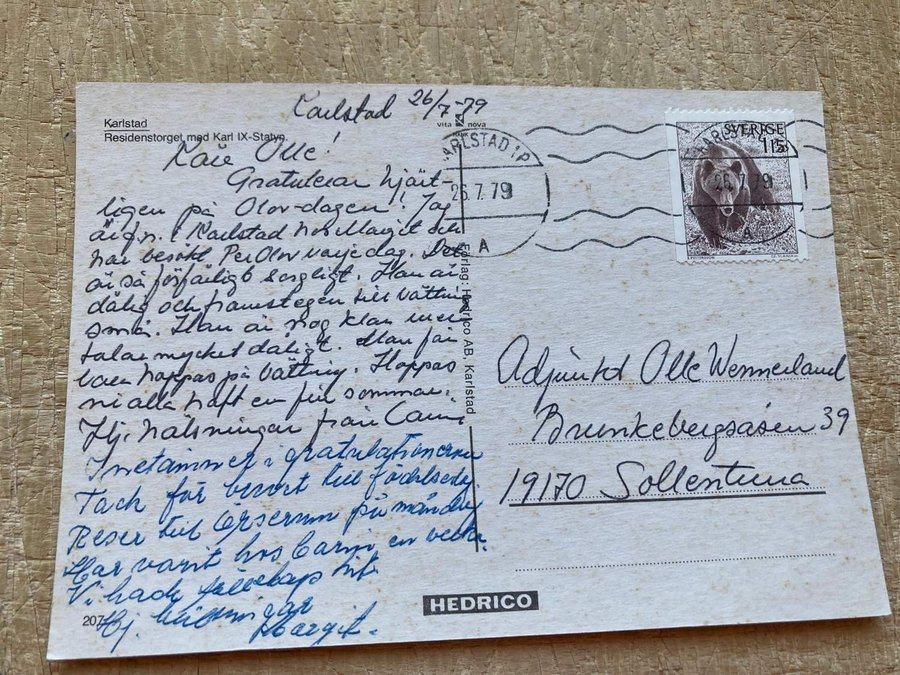 Karlstad 26/7-79
Karlstad
Residenstorget med Karl IX-Statyn.
vita nova
Käre Olle!
Gratulerar hjärt-
ligen på Olov-dagen! Jag
är f.n. i Karlstad hos Margit och
har besökt Per Olov varje dag. Det
är så förfärligt sorgligt. Han är
dålig och framstegen till bättring
små. Han är nog klar men
talar mycket dåligt. Man får
bara hoppas på bättring. Hoppas
ni alla haft en fin sommar.
Hj. hälsningar från Carin
Instämmer i gratulationerna
Tack för kortet till födelsedag.
Reser till på måndag
Har varit hos Carin en vecka.
Vi hade hit.
Hj. hälsningar
Margit.
207
Förlag: Hedrico AB, Karlstad
HEDRICO
KARLSTAD 1P
26.7.79
A
SVERIGE
115
KARLSTAD
26.7.79
A
Adjunkt Olle Wennerland
Brunkebergsåsen 39
19170 Sollentuna